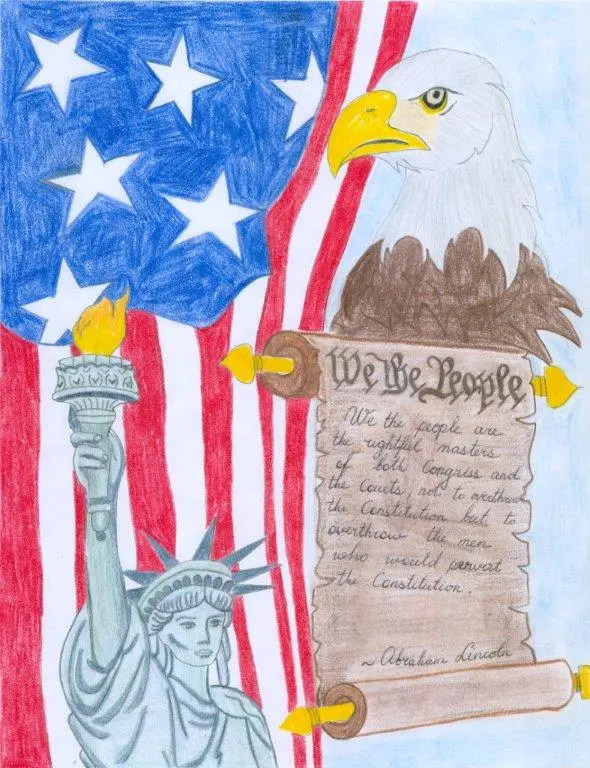 We The People
We the people are
the rightful masters
of both Congress and
the Courts, not to overthrow
the Constitution but to
overthrow the men
who would pervert
the Constitution.
~ Abraham Lincoln